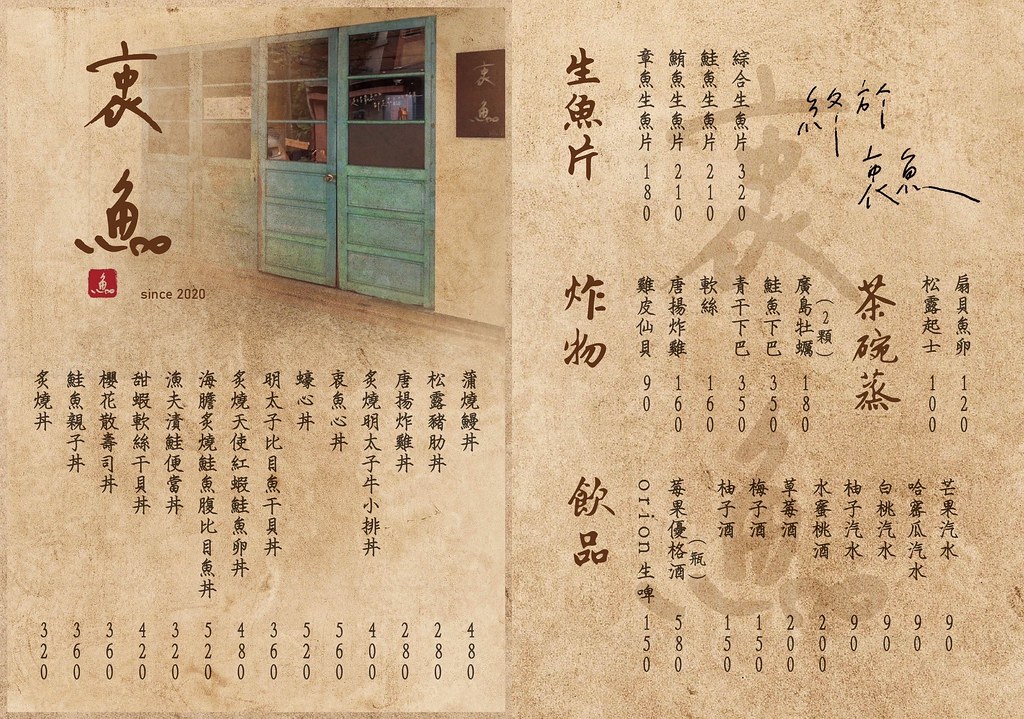 衷魚
魚
since 2020
衷魚
炙燒丼 320
鮭魚親子丼 360
櫻花散壽司丼 360
甜蝦軟絲干貝丼 420
漁夫漬鮭便當丼 320
海膽炙燒鮭魚腹比目魚丼 520
炙燒天使紅蝦鮭魚卵丼 480
明太子比目魚干貝丼 360
蠔心丼 520
衷魚心丼 560
炙燒明太子牛小排丼 400
唐揚炸雞丼 280
松露豬肋丼 280
蒲燒鰻丼 480
生魚片
章魚生魚片 180
鮪魚生魚片 210
鮭魚生魚片 210
綜合生魚片 320
終於
衷魚
炸物
雞皮仙貝 90
唐揚炸雞 160
軟絲 160
青干下巴 350
鮭魚下巴 350
廣島牡蠣(2顆) 180
茶碗蒸
松露起士 100
扇貝魚卵 120
飲品
orion生啤 150
莓果優格酒(瓶) 580
柚子酒 150
梅子酒 150
草莓酒 200
水蜜桃酒 200
柚子汽水 90
白桃汽水 90
哈蜜瓜汽水 90
芒果汽水 90
衷魚